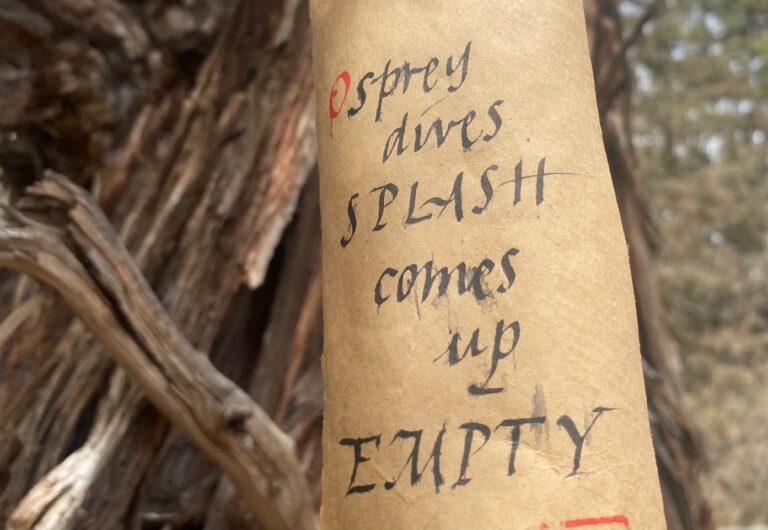 Osprey
dives
SPLASH
comes
up
EMPTY